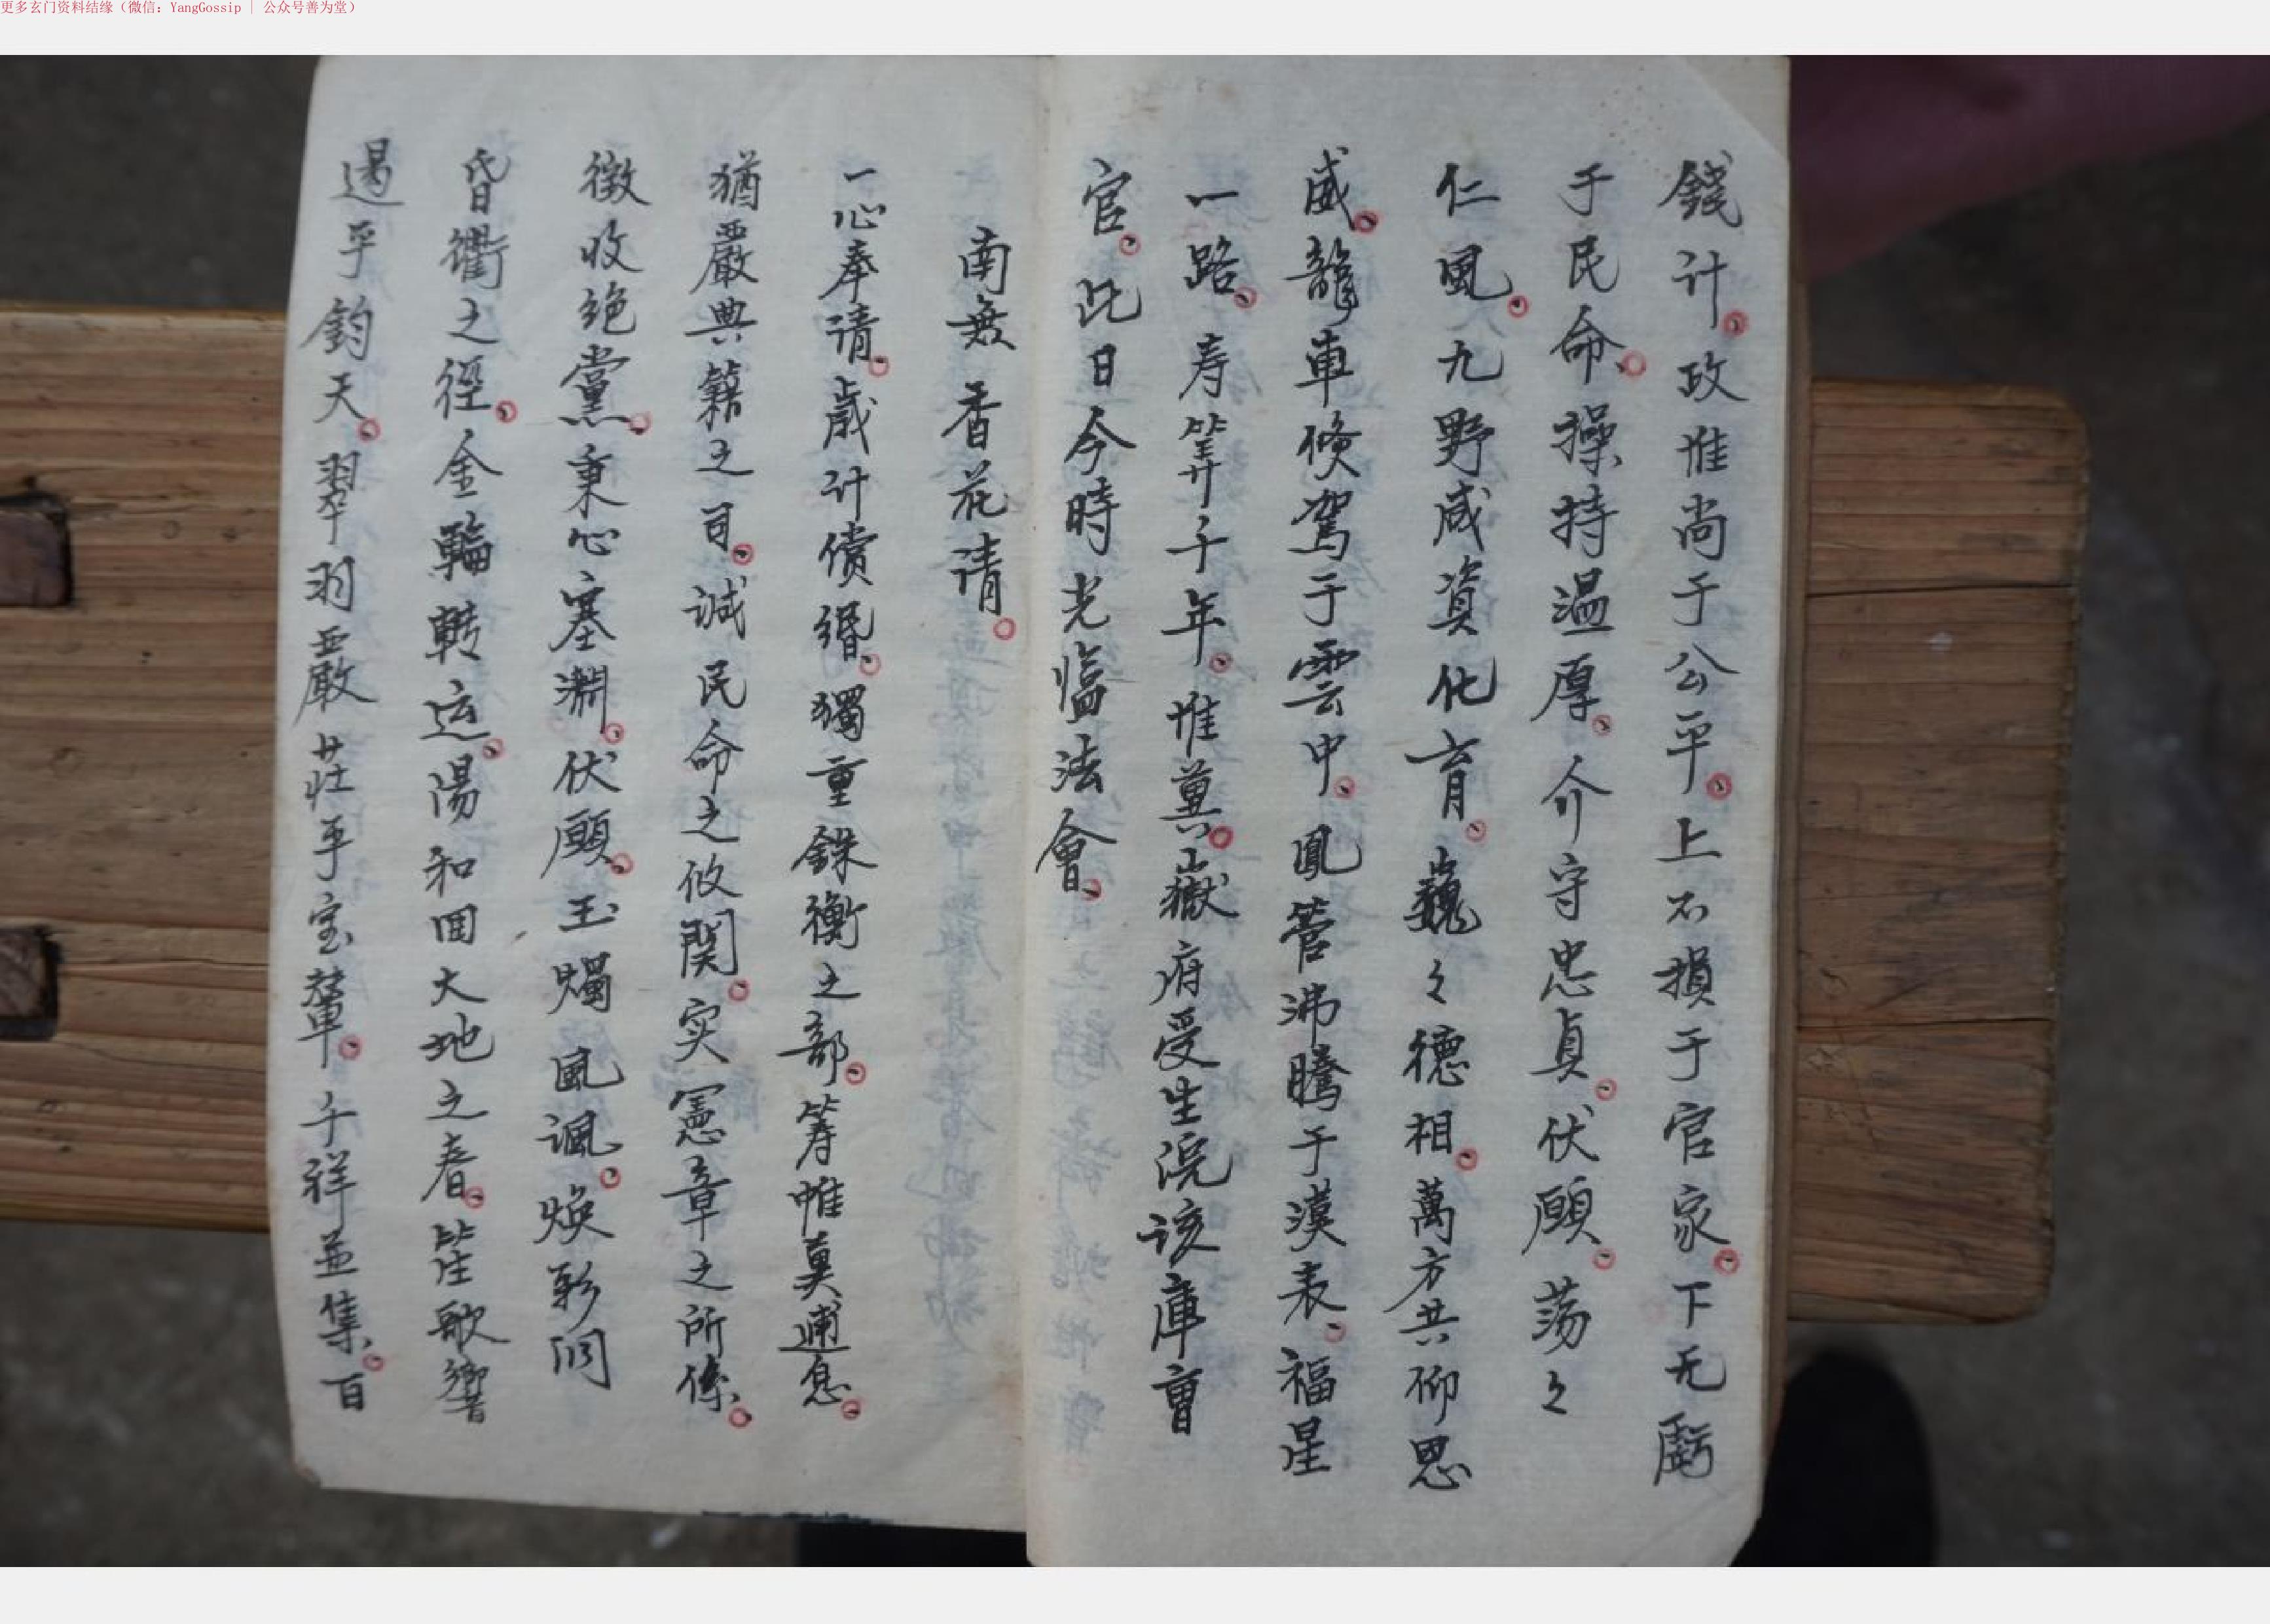 更多玄门资料结缘（微信：YangGossip | 公众号善为堂）
錢计。政惟尚于公平。上不損于官家。下无虧
于民命。操持温厚。介守忠貞。伏願。荡々
仁風。九野咸資化育。巍々德相。萬方共仰恩
威。龍車倏駕于雲中。鳳管沸騰于漢表。福星
一路。寿筭千年。惟冀。嶽府受生浣该庫曺
官。此日今時光临法會。
南無香花请。
一心奉请。歲计償缗。獨重銖衡之部。筹帷莫逋息。
猶嚴典籍之司。诚民命之攸関。实憲章之所係。
徵收绝黨。秉心塞淵。伏願。玉燭風调。焕彩開
昏衢之徑。金輪轉运。陽和回大地之春。笙歌響
遏乎鈞天。翠羽嚴莊乎宝輦。千祥並集。百